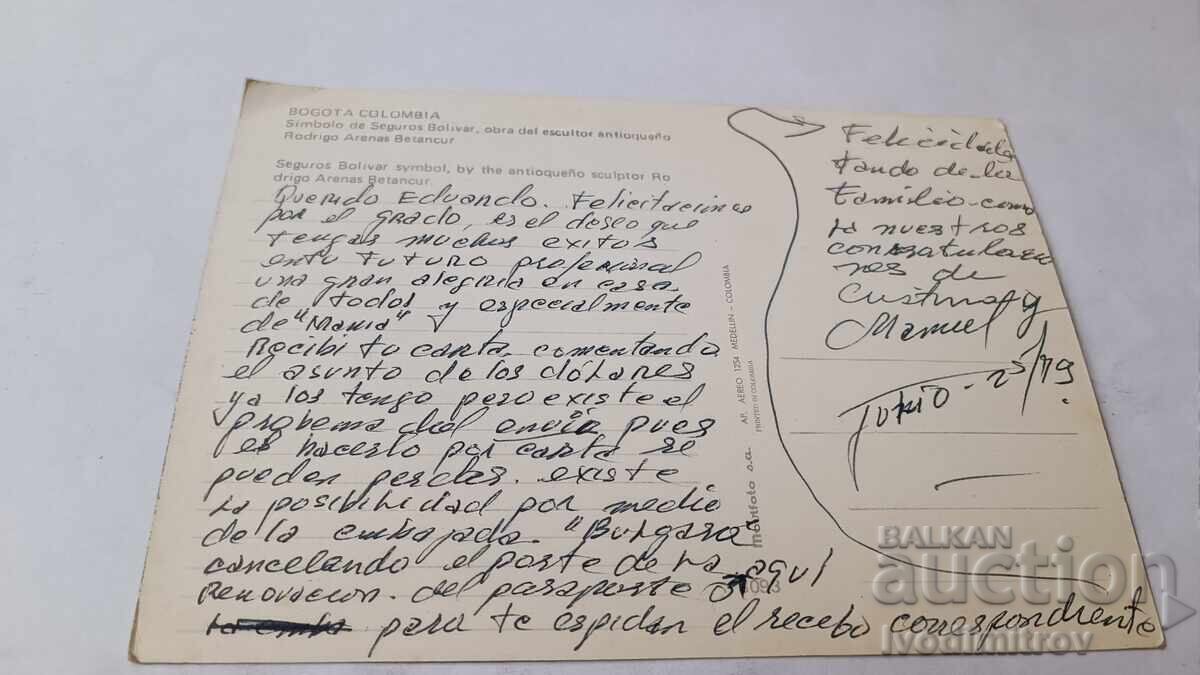 BOGOTA COLOMBIA
Símbolo de Seguros Bolívar, obra del escultor antioqueño
Rodrigo Arenas Betancur
Seguros Bolívar symbol, by the antioqueño sculptor Ro
drigo Arenas Betancur.
Querido Eduardo. Felicitaciones
por el grado, es el deseo que
tengas muchos exitos
en tu futuro profesional
una gran alegria en casa
de todos y especialmente
de "Maria"
Recibi tu carta comentando
el asunto de los dólares
ya los tengo pero existe el
problema del envío pues
el hacerlo por carta se
pueden perder. existe
la posibilidad por medio
de la embajada. "Bulgara"
cancelando el porte de la aqui
Renovacion. del pasaporte
para te espidan el recebo correspondiente
movifoto s.a. AP. AEREO 1254 MEDELLIN - COLOMBIA
PRINTED IN COLOMBIA
1093
Felicidades
tando de la
familia como
la nuestros
congratulacio
nes de
Cristina y
Manuel
Junio - 25/79.
BALKAN
auction
ivodimitrov